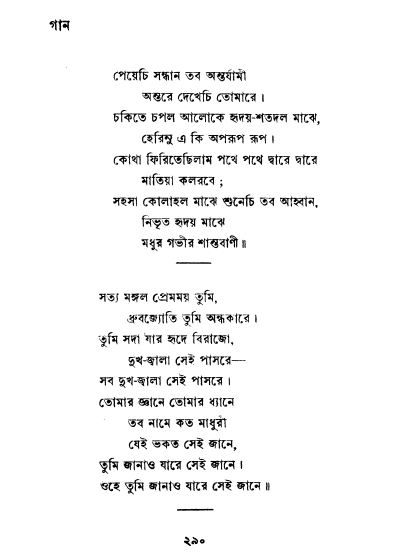 গান
পেয়েচি সন্ধান তব অন্তর্যামী
অন্তরে দেখেচি তোমারে।
চকিতে চপল আলোকে হৃদয়-শতদল মাঝে,
হেরিনু এ কি অপরূপ রূপ।
কোথা ফিরিতেছিলাম পথে পথে দ্বারে দ্বারে
মাতিয়া কলরবে;
সহসা কোলাহল মাঝে শুনেচি তব আহ্বান,
নিভৃত হৃদয় মাঝে
মধুর গভীর শান্তবাণী॥
সত্য মঙ্গল প্রেমময় তুমি,
ধ্রুবজ্যোতি তুমি অন্ধকারে।
তুমি সদা যার হৃদে বিরাজো,
দুখ-জ্বালা সেই পাসরে—
সব দুখ-জ্বালা সেই পাসরে।
তোমার জ্ঞানে তোমার ধ্যানে
তব নামে কত মাধুরী
যেই ভকত সেই জানে,
তুমি জানাও যারে সেই জানে।
ওহে তুমি জানাও যারে সেই জানে॥
২৯০